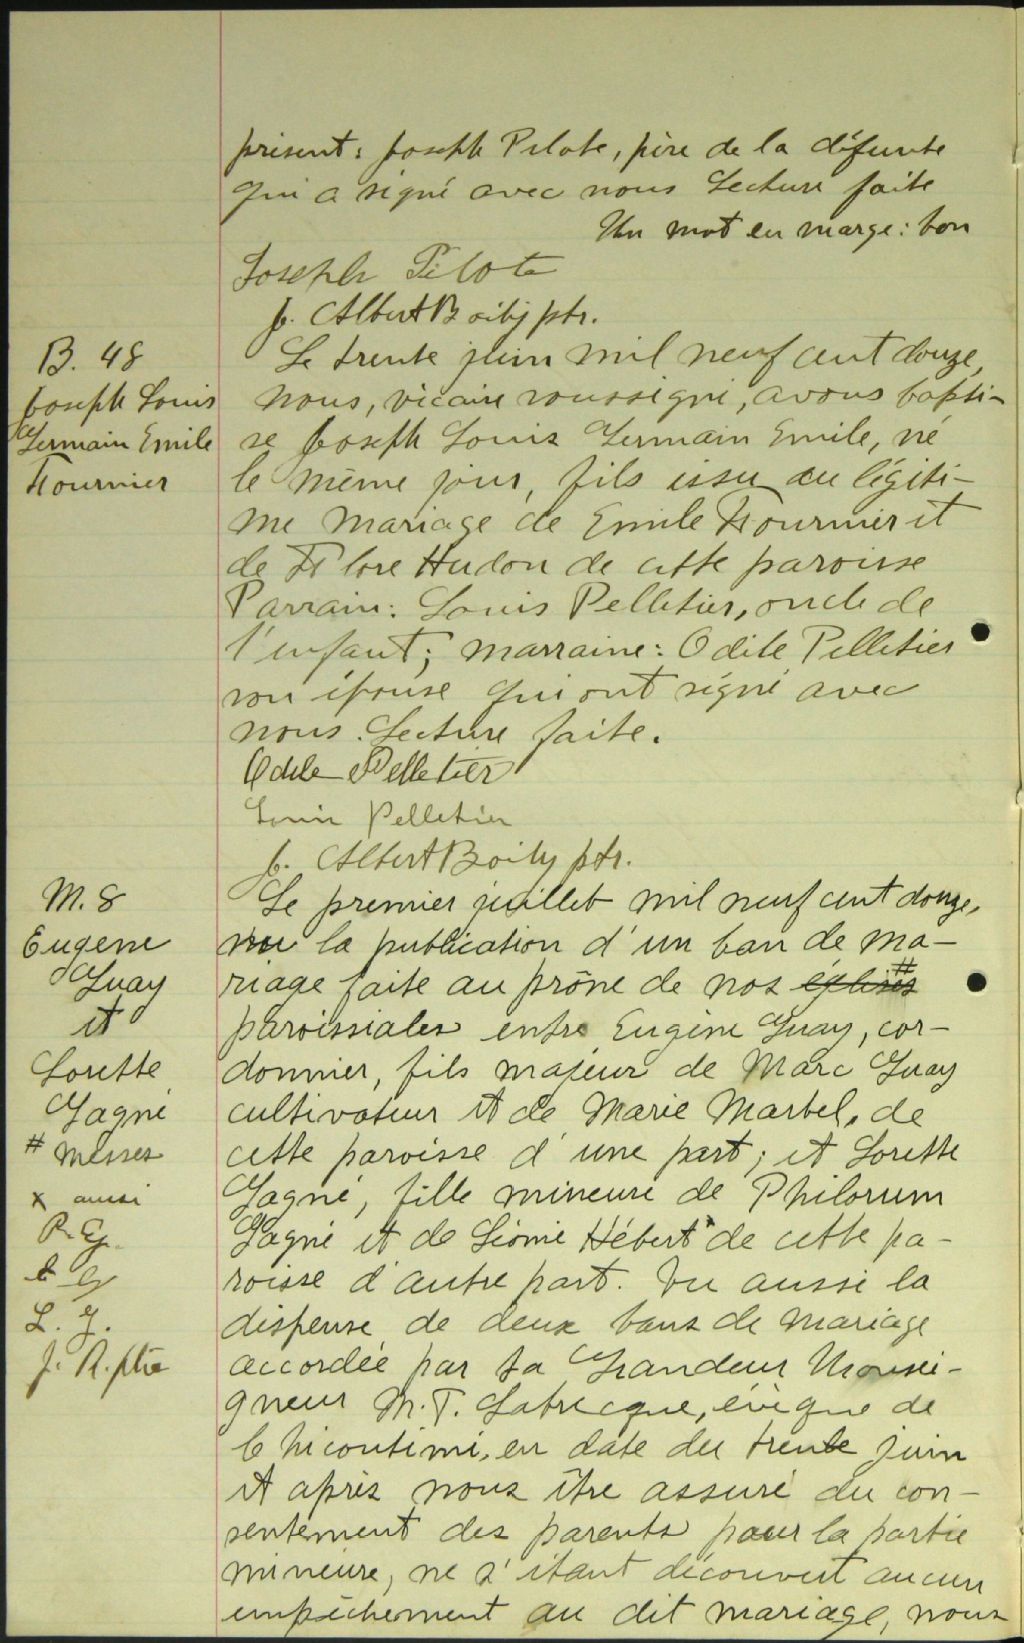 présent: Joseph Pilote, père de la défunte
qui a signé avec nous Lecture faite
Un mot en marge: bon
Joseph Pilote
J. Albert Boily ptr.
B. 48
Joseph Louis
Germain Emile
Fournier
Le trente juin mil neuf cent douze,
nous, vicaire soussigné, avons bapti-
sé Joseph Louis Germain Emile, né
le même jour, fils issu du légiti-
me mariage de Emile Fournier et
de Flore Hudon de cette paroisse
Parrain: Louis Pelletier, oncle de
l'enfant; marraine: Odile Pelletier
son épouse qui ont signé avec
nous. Lecture faite.
Odile Pelletier
Louis Pelletier
J. Albert Boily ptr.
M. 8
Eugène
Guay
et
Lorette
Gagné
# messes
x aussi
L. G.
J. R. ptre
Le premier juillet mil neuf cent douze,
vu la publication d'un ban de ma-
riage faite au prône de nos églises #
paroissiales entre Eugène Guay, cor-
donnier, fils majeur de Marc Guay
cultivateur et de Marie Martel, de
cette paroisse d'une part; et Lorette
Gagné, fille mineure de Philorum
Gagné et de Léonie Hébert x de cette pa-
roisse d'autre part. Vu aussi la
dispense de deux bans de mariage
accordée par Sa Grandeur Monsei-
gneur M. T. Labrecque, évêque de
Chicoutimi, en date du trente juin
et après nous être assuré du con-
sentement des parents pour la partie
mineure, ne s'étant découvert aucun
empêchement au dit mariage, nous